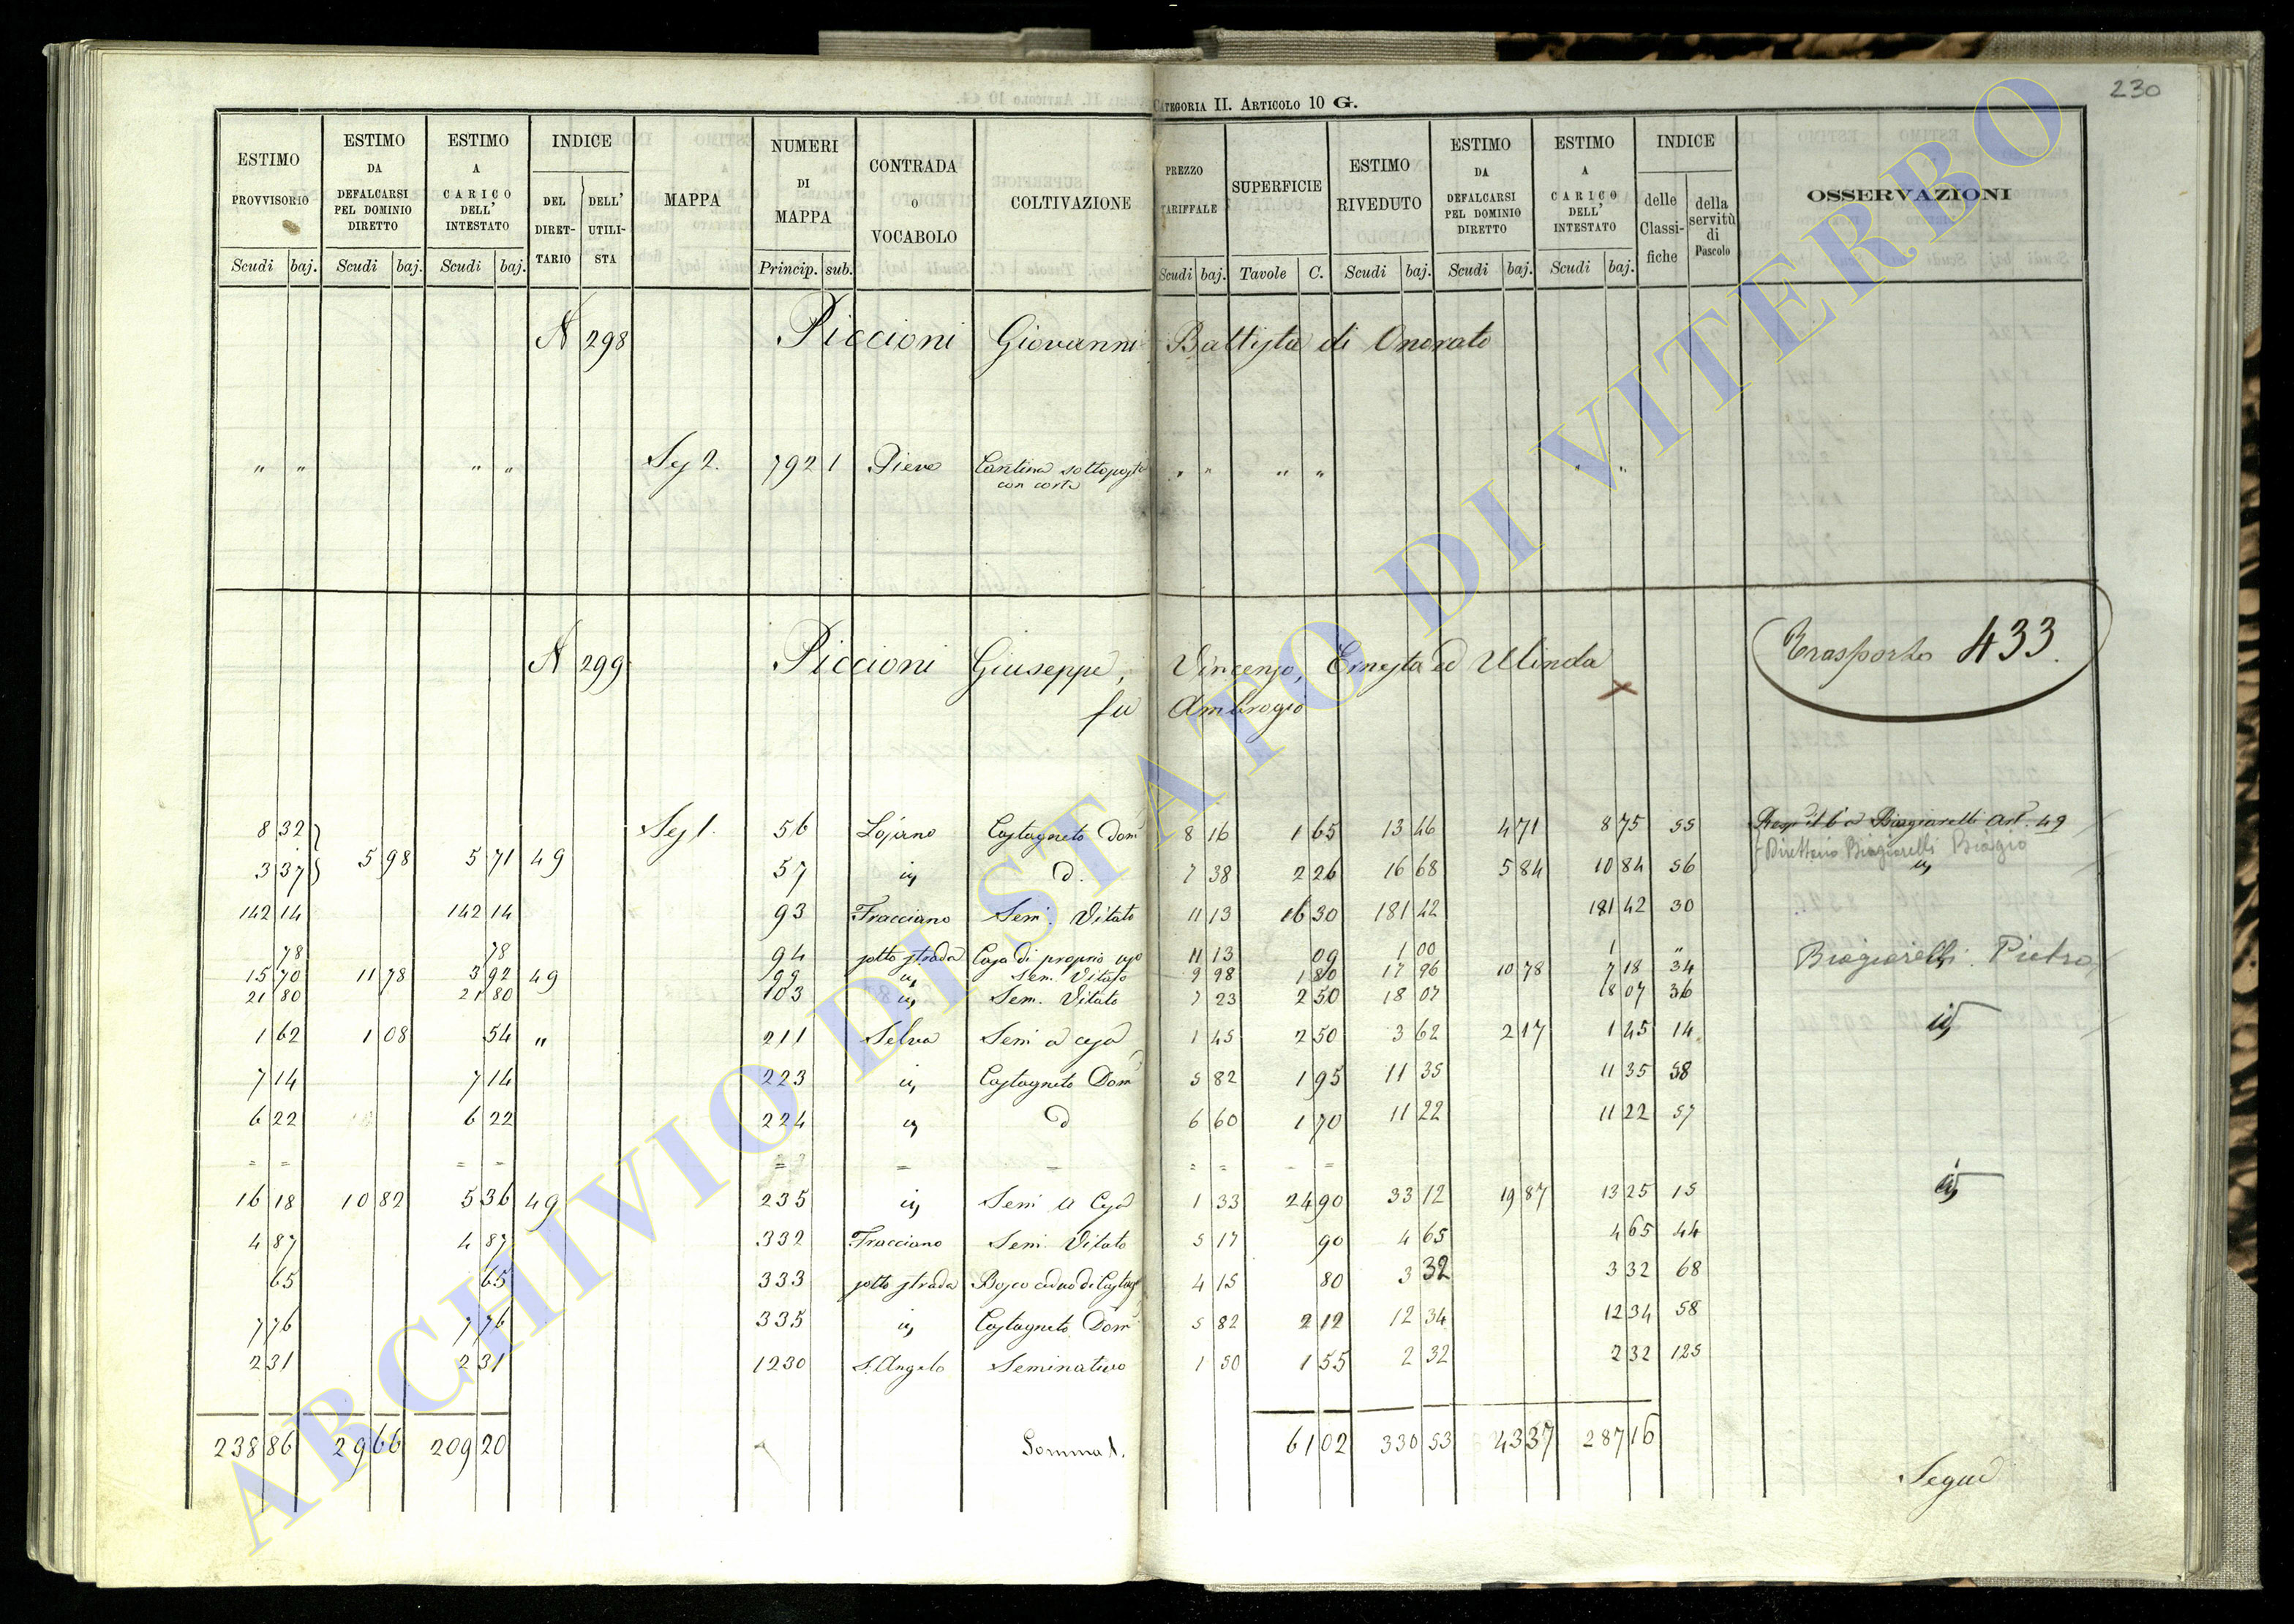 230
CATEGORIA II. ARTICOLO 10 G.
ESTIMO PROVVISORIO Scudi baj.
ESTIMO DA DEFALCARSI PEL DOMINIO DIRETTO Scudi baj.
ESTIMO A CARICO DELL' INTESTATO Scudi baj.
INDICE DEL DIRETTARIO DELL' UTILISTA
MAPPA
NUMERI DI MAPPA Princip. sub.
CONTRADA O VOCABOLO
COLTIVAZIONE
PREZZO TARIFFALE Scudi baj.
SUPERFICIE Tavole C.
ESTIMO RIVEDUTO Scudi baj.
ESTIMO DA DEFALCARSI PEL DOMINIO DIRETTO Scudi baj.
ESTIMO A CARICO DELL' INTESTATO Scudi baj.
INDICE delle Classifiche della servitù di Pascolo
OSSERVAZIONI
N 298 Piccioni Giovanni Battista di Onorato
" " " " Sez 2. 792 1 Pieve Cantina sottoposta con corte " " " " " "
N 299 Piccioni Giuseppe, Vincenzo, Ernesta ed Ulinda
fu Ambrogio
Trasporto 433.
8 32 Sez 1. 56 Lojano Castagneto Dom 8 16 1 65 13 46 4 71 8 75 55 Biagiarelli Art. 49
Direttario Biagiarelli Biagio
3 37 5 98 5 71 49 57 id D. 7 38 2 26 16 68 5 84 10 84 56 id
142 14 142 14 93 Fracciano Sem. Vitato 11 13 16 30 181 42 181 42 30
78 78 94 sotto strada Casa di proprio uso 11 13 09 1 00 1 "
15 70 11 78 3 92 49 99 id Sem. Vitato 9 98 1 80 17 96 10 78 7 18 34 Biagiarelli Pietro
21 80 21 80 103 id Sem. Vitato 7 23 2 50 18 07 18 07 36
1 62 1 08 54 " 211 Selva Sem a ceja 1 45 2 50 3 62 2 17 1 45 14 id
7 14 7 14 223 id Castagneto Dom 5 82 1 95 11 35 11 35 58
6 22 6 22 224 id D 6 60 1 70 11 22 11 22 57
= = = = = = = = = = =
16 18 10 82 5 36 49 235 id Sem a Ceja 1 33 24 90 33 12 19 87 13 25 15 id
4 87 4 87 332 Fracciano Sem. Vitato 5 17 90 4 65 4 65 44
65 65 333 sotto strada Bosco ceduo di Castag 4 15 80 3 32 3 32 68
7 76 7 76 335 id Castagneto Dom 5 82 2 12 12 34 12 34 58
2 31 2 31 1230 S. Angelo Seminativo 1 50 1 55 2 32 2 32 125
238 86 29 66 209 20 Somma 1. 61 02 330 53 43 37 287 16
Segue
ARCHIVIO DI STATO DI VITERBO